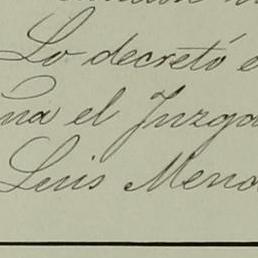 Lo decretó e
na el Juzga
Luis Mend